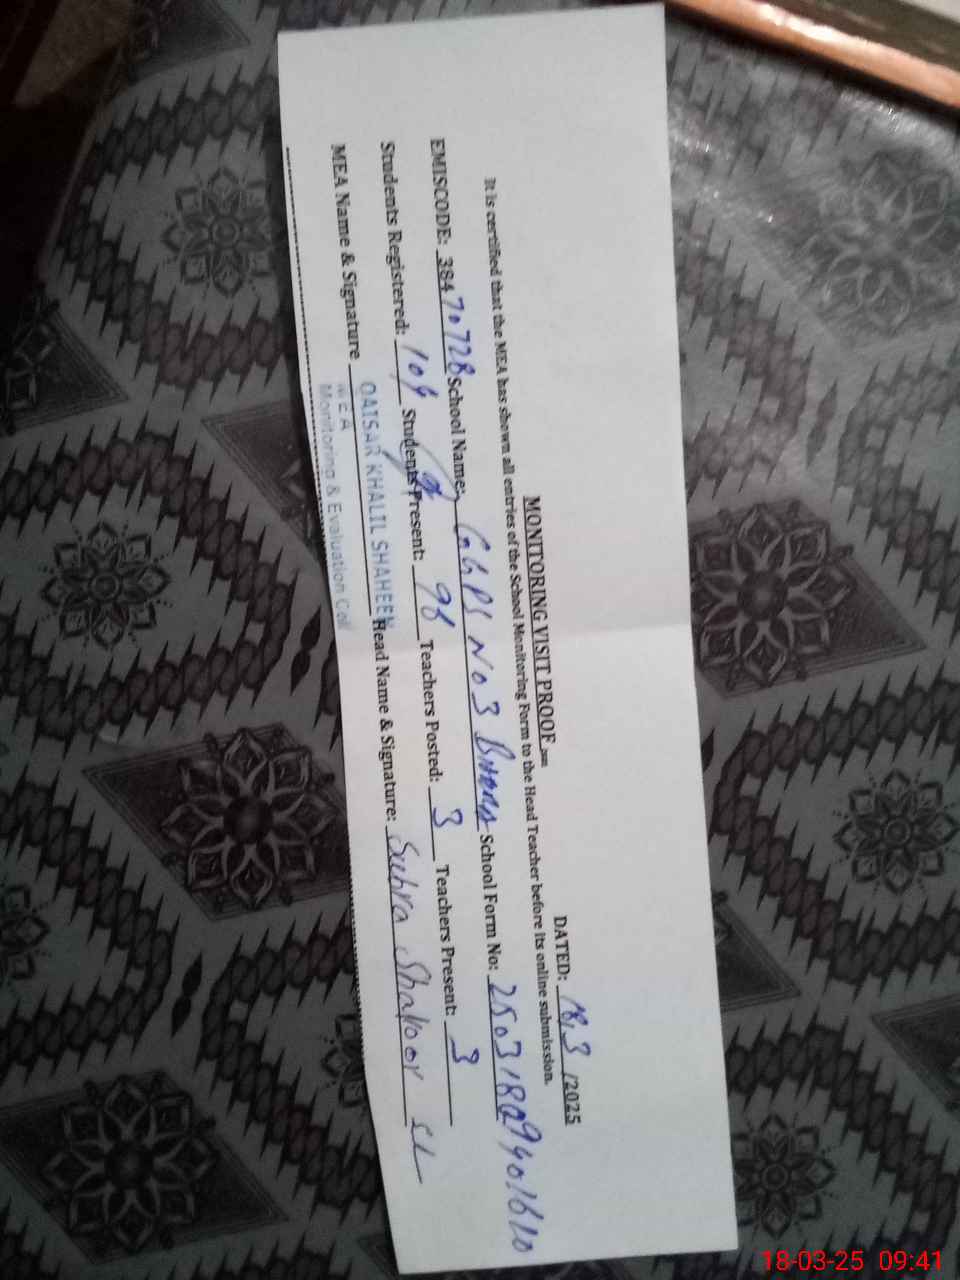 MONITORING VISIT PROOF
DATED: 18.3 /2025
It is certified that the MEA has shown all entries of the School Monitoring Form to the Head Teacher before its online submission.
EMISCODE: 38470728 School Name: GGPS No 3 School Form No:
Students Registered: 109 Students Present: 98 Teachers Posted: 3 Teachers Present: 3
MEA Name & Signature Head Name & Signature: Shakoor
QAISAR KHALIL SHAHEEN
MEA
Monitoring & Evaluation Cell
18-03-25 09:41